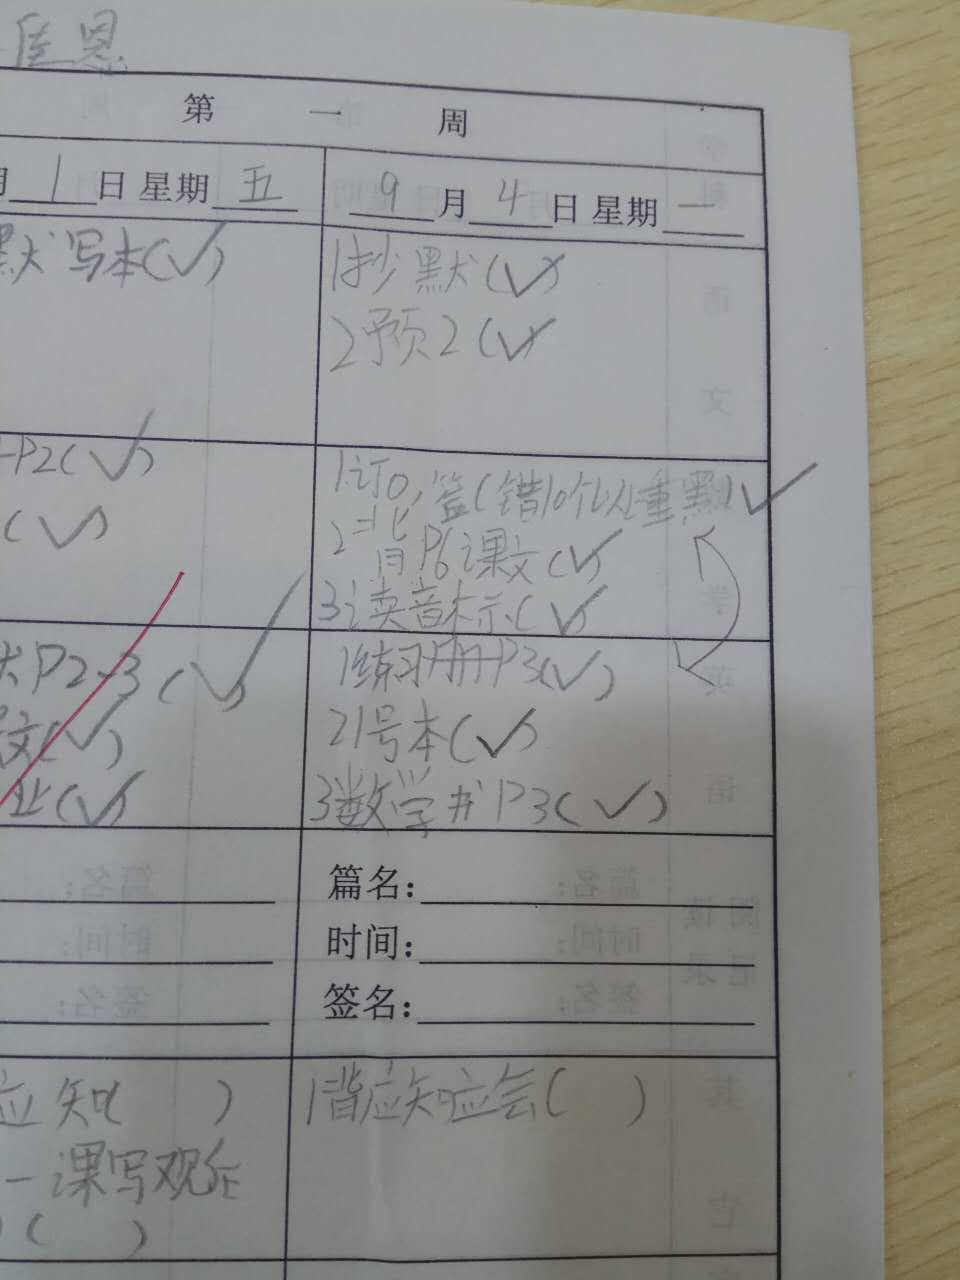 佳恩
第 一 周
月 1 日 星期 五
9 月 4 日 星期 一
默写本(✓)
1抄默(✓)
2预2(✓)
P2(✓)
(✓)
1.订0,签(错10个以上重默)✓
2背P6课文(✓)
3读音标(✓)
P2-3(✓)
文(✓)
业(✓)
1练习册P3(✓)
21号本(✓)
3数学书P3(✓)
篇名:
时间:
签名:
应知( )
一课写观
( )
1背应知应会( )